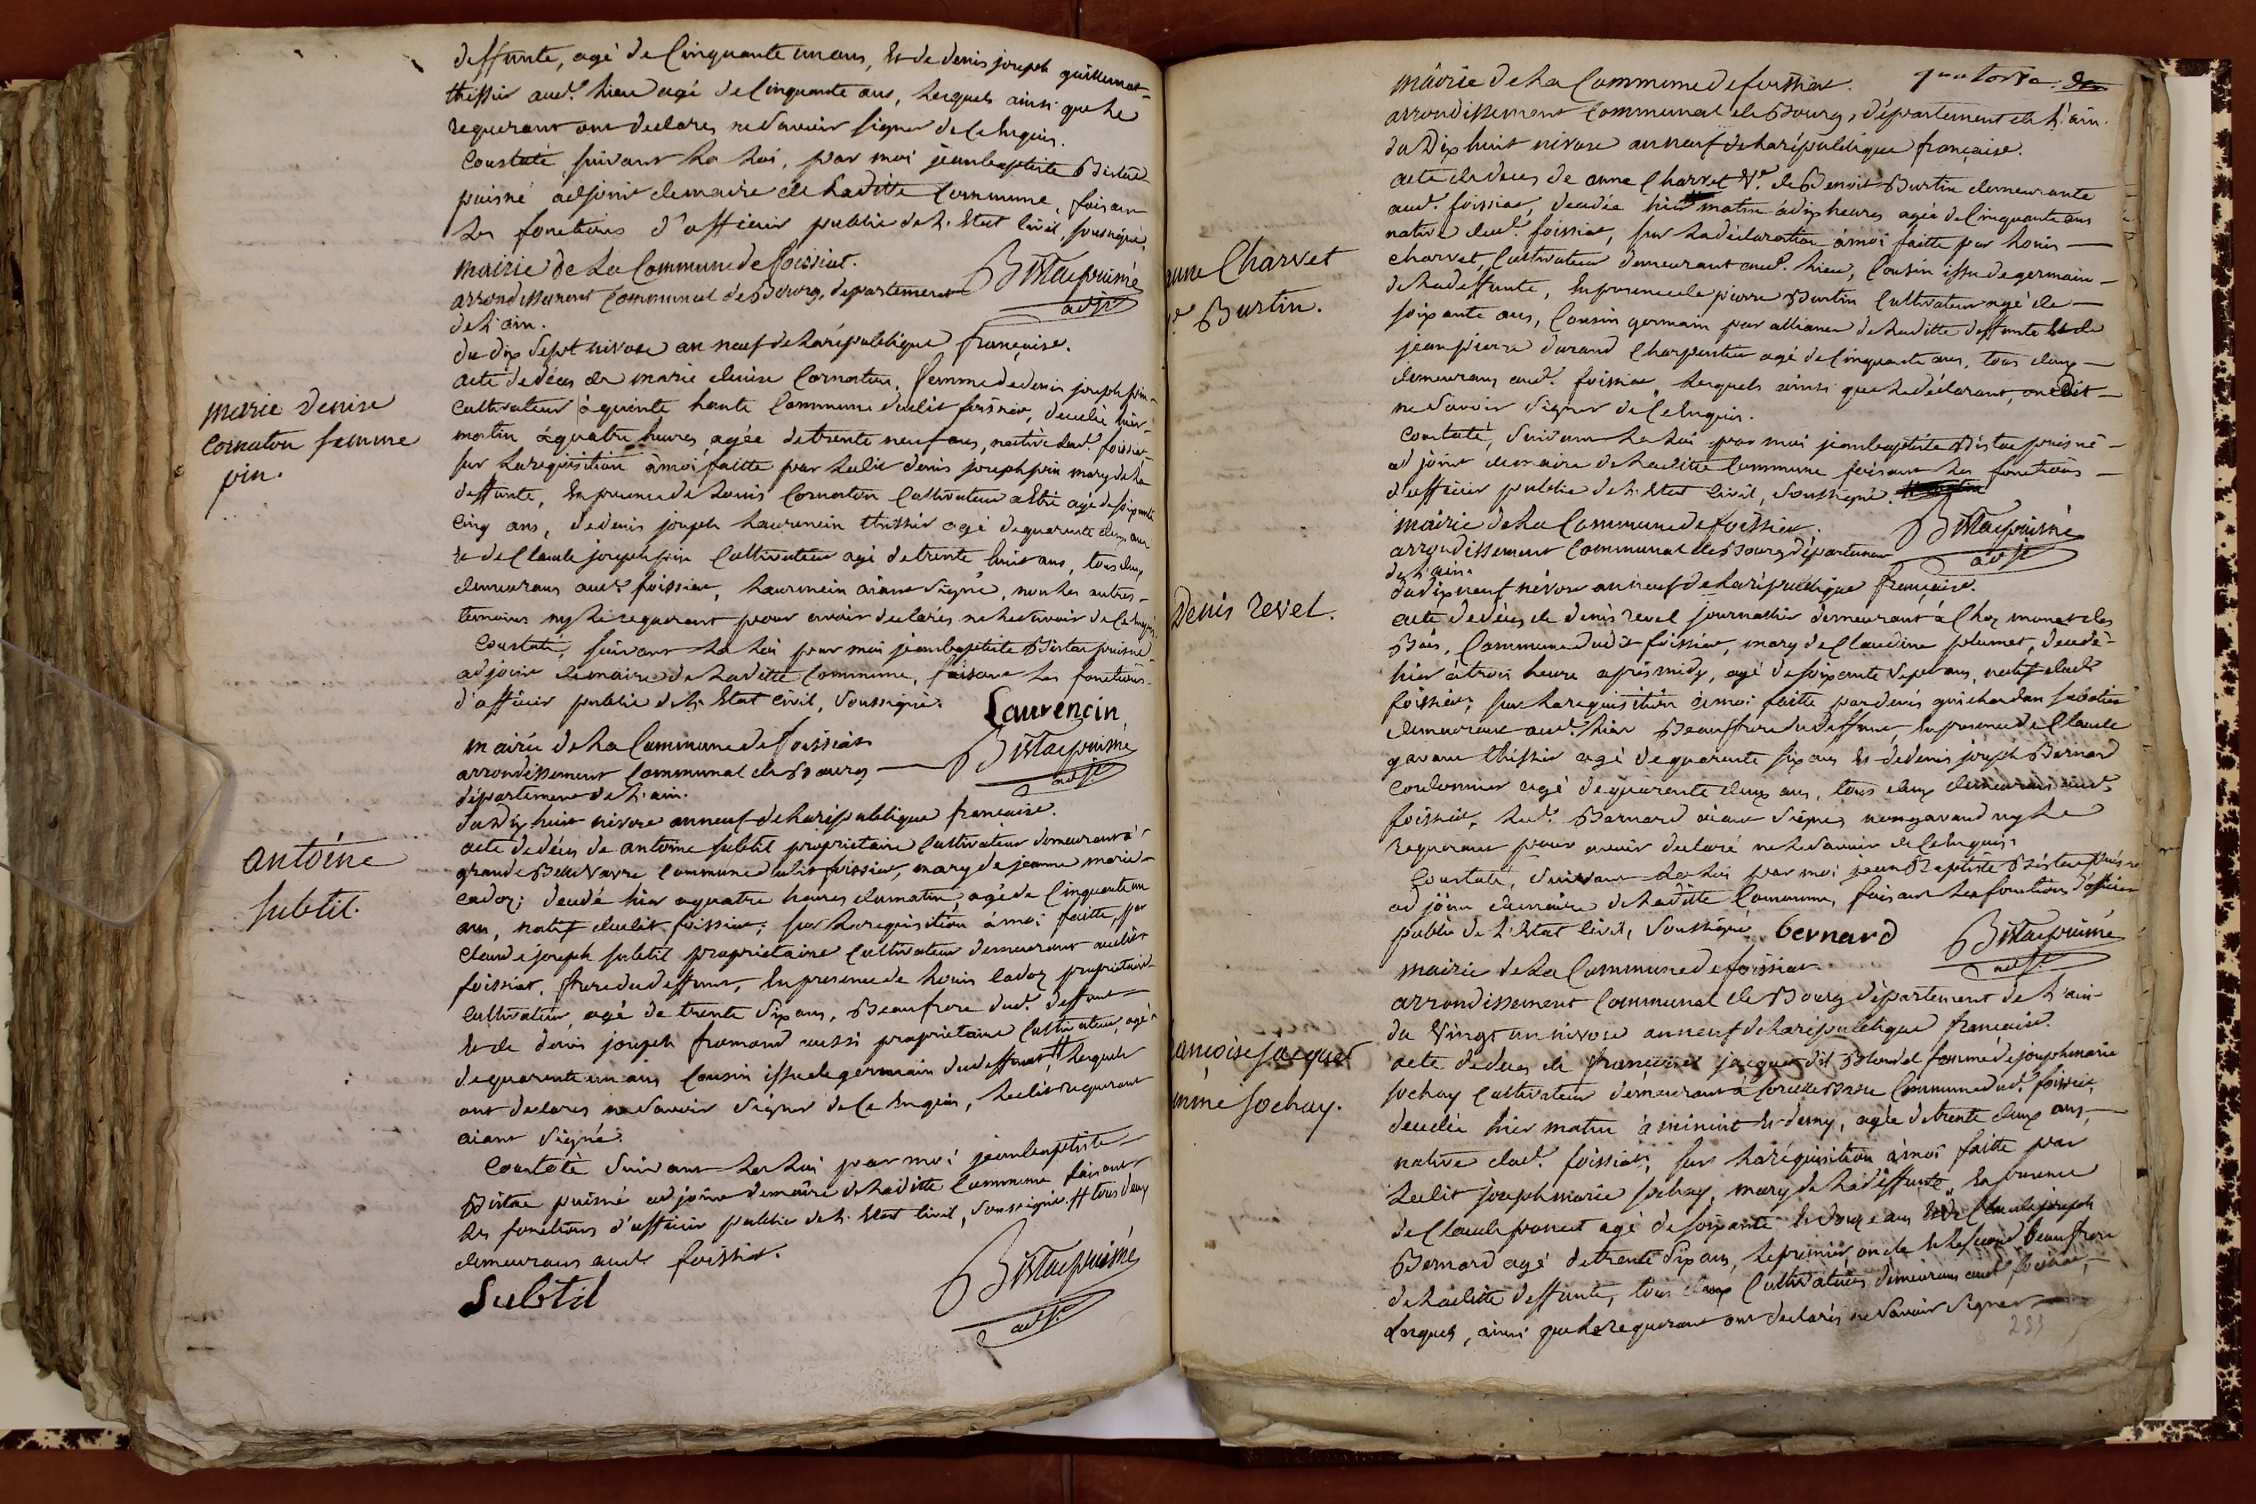 deffunte, agé de Cinquante un ans, Et de denis joseph guillemot
thissier aud.t Lieu agé de Cinquante ans, Lesquels ainsi que Le
requerant ont declarés ne Savoir signer de Ce Enquis.
Constaté, suivant La Loi, par moi jeanbaptiste Bistac
puisné adjoint demaire de Laditte Commune, faisant
Les fonctions d'officier public de L. Etat Civil, soussigné,
Bistac puisné
adjt
Mairie de La Commune de foissiat.
arrondissement Communal de Bourg, departement
de L'ain.
du dix Sept nivose an neuf de La république française.
marie denise
Cornaton femme
pin.
acte de déces de marie denise Cornaton, femme de denis joseph pin
Cultivateur à quinte haute Commune dudit foissiat, decedée hier
matin à quatre heures, agée de trente neuf ans, native dud.t foissiat
sur La requisition à moi faitte par Ledit denis joseph pin mary de La
deffunte, En presence de Louis Cornaton Cultivateur agé de soixante
Cinq ans, de denis joseph Laurencin thissier agé de quarente deux ans
Et de Claude joseph pin Cultivateur agé de trente huit ans, tous
demeurans aud.t foissiat, Laurencin aiant Signé, non Les autres
temoins ny Le requerant pour avoir declarés ne Le Savoir de Ce Enquis.
Constaté, suivant La Loi par moi jeanbaptiste Bistac puisné
adjoint demaire de Laditte Commune, faisant Les fonctions
d'officier public de L. Etat Civil, Soussigné.
Laurencin
Bistac puisné
adjt
Mairie de La Commune de foissiat
arrondissement Communal de Bourg
département de L'ain.
du Dix huit nivose an neuf de La république française.
antoine
subtil.
acte de déces de antoine subtil proprietaire Cultivateur demeurant à
grande Commune dudit foissiat, mary de jeanne marie
cadoz; decedé hier a quatre heures du matin agé de Cinquante un
ans, natif dudit foissiat; sur La requisition à moi faitte, par
Claude joseph subtil proprietaire Cultivateur demeurant audit
foissiat, frere du deffunt, En presence de Louis Cadoz proprietaire
Cultivateur, agé de trente Six ans, Beaufrere dud.t deffunt
Et de denis joseph fromond aussi proprietaire Cultivateur, agé
de quarente un ans Cousin issu de germain du deffunt # Lesquels
ont declarés ne Savoir Signer de Ce Enquis, Ledit requerant
aiant Signé.
Constaté Suivant La Loi par moi jeanbaptiste
Bistac puisné adjoint demaire de Laditte Commune faisant
Les fonctions d'officier public de L. Etat Civil, Soussigné. # tous deux
demeurans aud.t foissiat.
Subtil
Bistac puisné
adjt
quatorze
Mairie de La Commune de foissiat.
arrondissement Communal de Bourg, département de L'ain.
du Dix huit nivose an neuf de La république française.
anne Charvet
Ve Burtin.
acte de deces de anne Charvet Ve de Benoit Burtin demeurante
aud.t foissiat, decedée hier matin à dix heures agée de Cinquante ans
native dud.t foissiat, sur La déclaration à moi faitte par Louis
Charvet, Cultivateur demeurant aud.t Lieu, Cousin issu de germain
de La deffunte, En presence de pierre Burtin Cultivateur agé de
soixante ans, Cousin germain par alliance de Laditte deffunte Et de
jean pierre durand Charpentier agé de Cinquante ans, tous deux
demeurans aud.t foissiat, Lesquels ainsi que Le déclarant, ont Dit
ne Savoir Signer de Ce Enquis.
Constaté, Suivant La Loi par moi jeanbaptiste Bistac puisné
adjoint demaire de Laditte Commune faisant Les fonctions
d'officier public de L. Etat Civil, Soussigné.
Bistac puisné
adjt
Mairie de La Commune de foissiat.
arrondissement Communal de Bourg département
de L'ain.
du dix neuf nivose an neuf de La république française.
Denis revel.
acte de déces de denis revel journallier demeurant à Chez monet des
Bois, Commune dudit foissiat, mary de Claudine plumet, decedé
hier à trois heure après midy, agé de soixante Sept ans, natif dud.t
foissiat; sur La requisition à moi faitte par denis guichardan sabotier
demeurant aud.t Lieu Beaufrere du deffunt, En presence de Claude
gavant thissier agé de quarente six ans Et de denis joseph Bernard
Cordonnier agé de quarente deux ans, tous deux demeurans aud.t
foissiat, Led.t Bernard aiant Signé, non gavand ny Le
requerant pour avoir declaré ne Le Savoir de Ce Enquis.
Constaté, Suivant La Loi par moi jean Baptiste Bistac puisné
adjoint demaire de Laditte Commune, faisant Les fonctions d'officier
public de L'Etat Civil, Soussigné.
bernard
Bistac puisné
adjt
Mairie de La Commune de foissiat
arrondissement Communal de Bourg département de L'ain
du Vingt un nivose an neuf de La république française.
françoise jacquet
femme sochay.
acte de deces de françoise jacquet dit Blondel femme de joseph marie
sochay Cultivateur demeurant à Commune dud.t foissiat,
decedée hier matin à minuit Et demy, agée de trente deux ans,
native dud.t foissiat, sur La réquisition à moi faitte par
Ledit joseph marie sochay, mary de La deffunte, En presence
de Claude poncet agé de soixante Et douze ans Et de Claude joseph
Bernard agé de trente Six ans, Le premier oncle Et Le second beaufrere
de Laditte deffunte, tous deux Cultivateurs demeurans aud.t foissiat,
Lesquels, ainsi que Le requerant ont declarés ne Savoir Signer
233